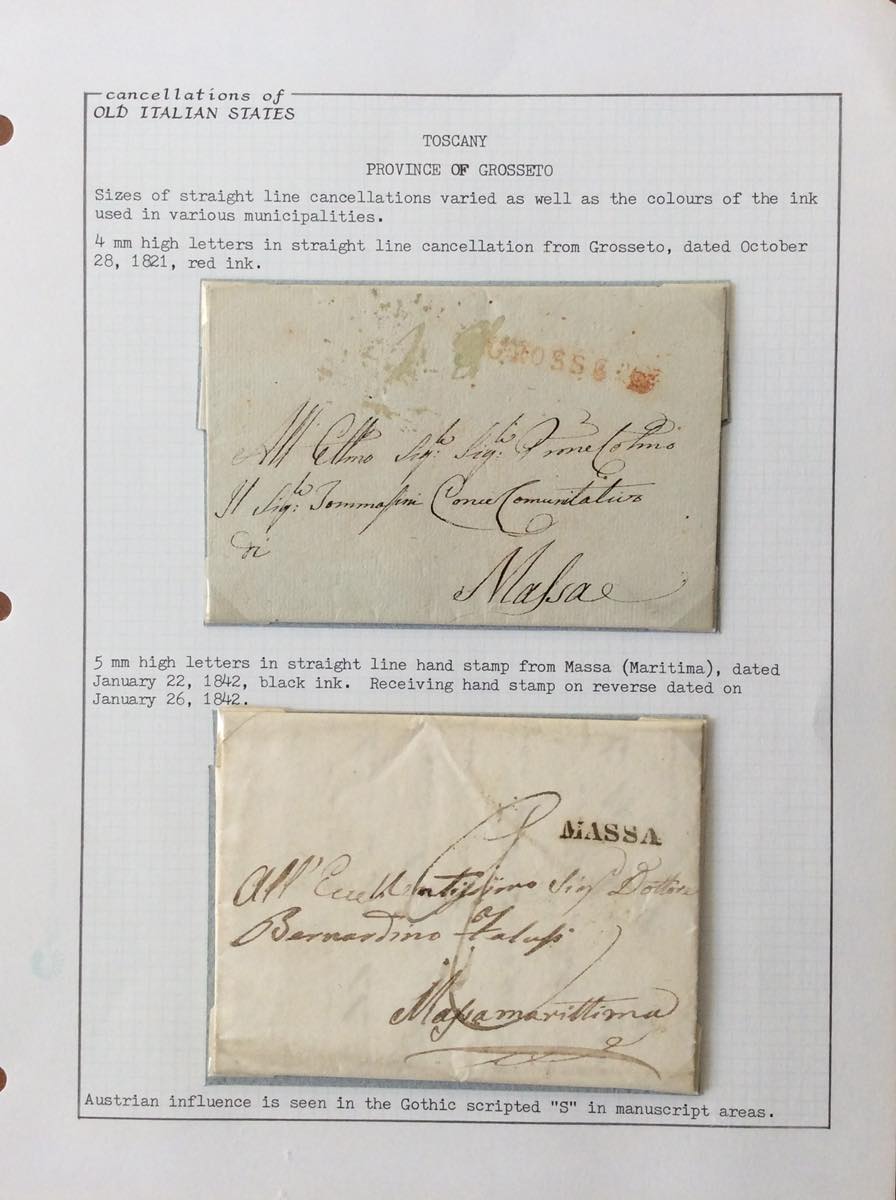 cancellations of
OLD ITALIAN STATES
TOSCANY
PROVINCE OF GROSSETO
Sizes of straight line cancellations varied as well as the colours of the ink
used in various municipalities.
4 mm high letters in straight line cancellation from Grosseto, dated October
28, 1821, red ink.
GROSSE
All' Sig:re Sig:re
Il Sig:re Tommassini Comunitativo
di
Massa
5 mm high letters in straight line hand stamp from Massa (Maritima), dated
January 22, 1842, black ink. Receiving hand stamp on reverse dated on
January 26, 1842.
MASSA
All' Eccellentissimo Sigr Dottore
Bernardino
Massamarittima
Austrian influence is seen in the Gothic scripted "S" in manuscript areas.